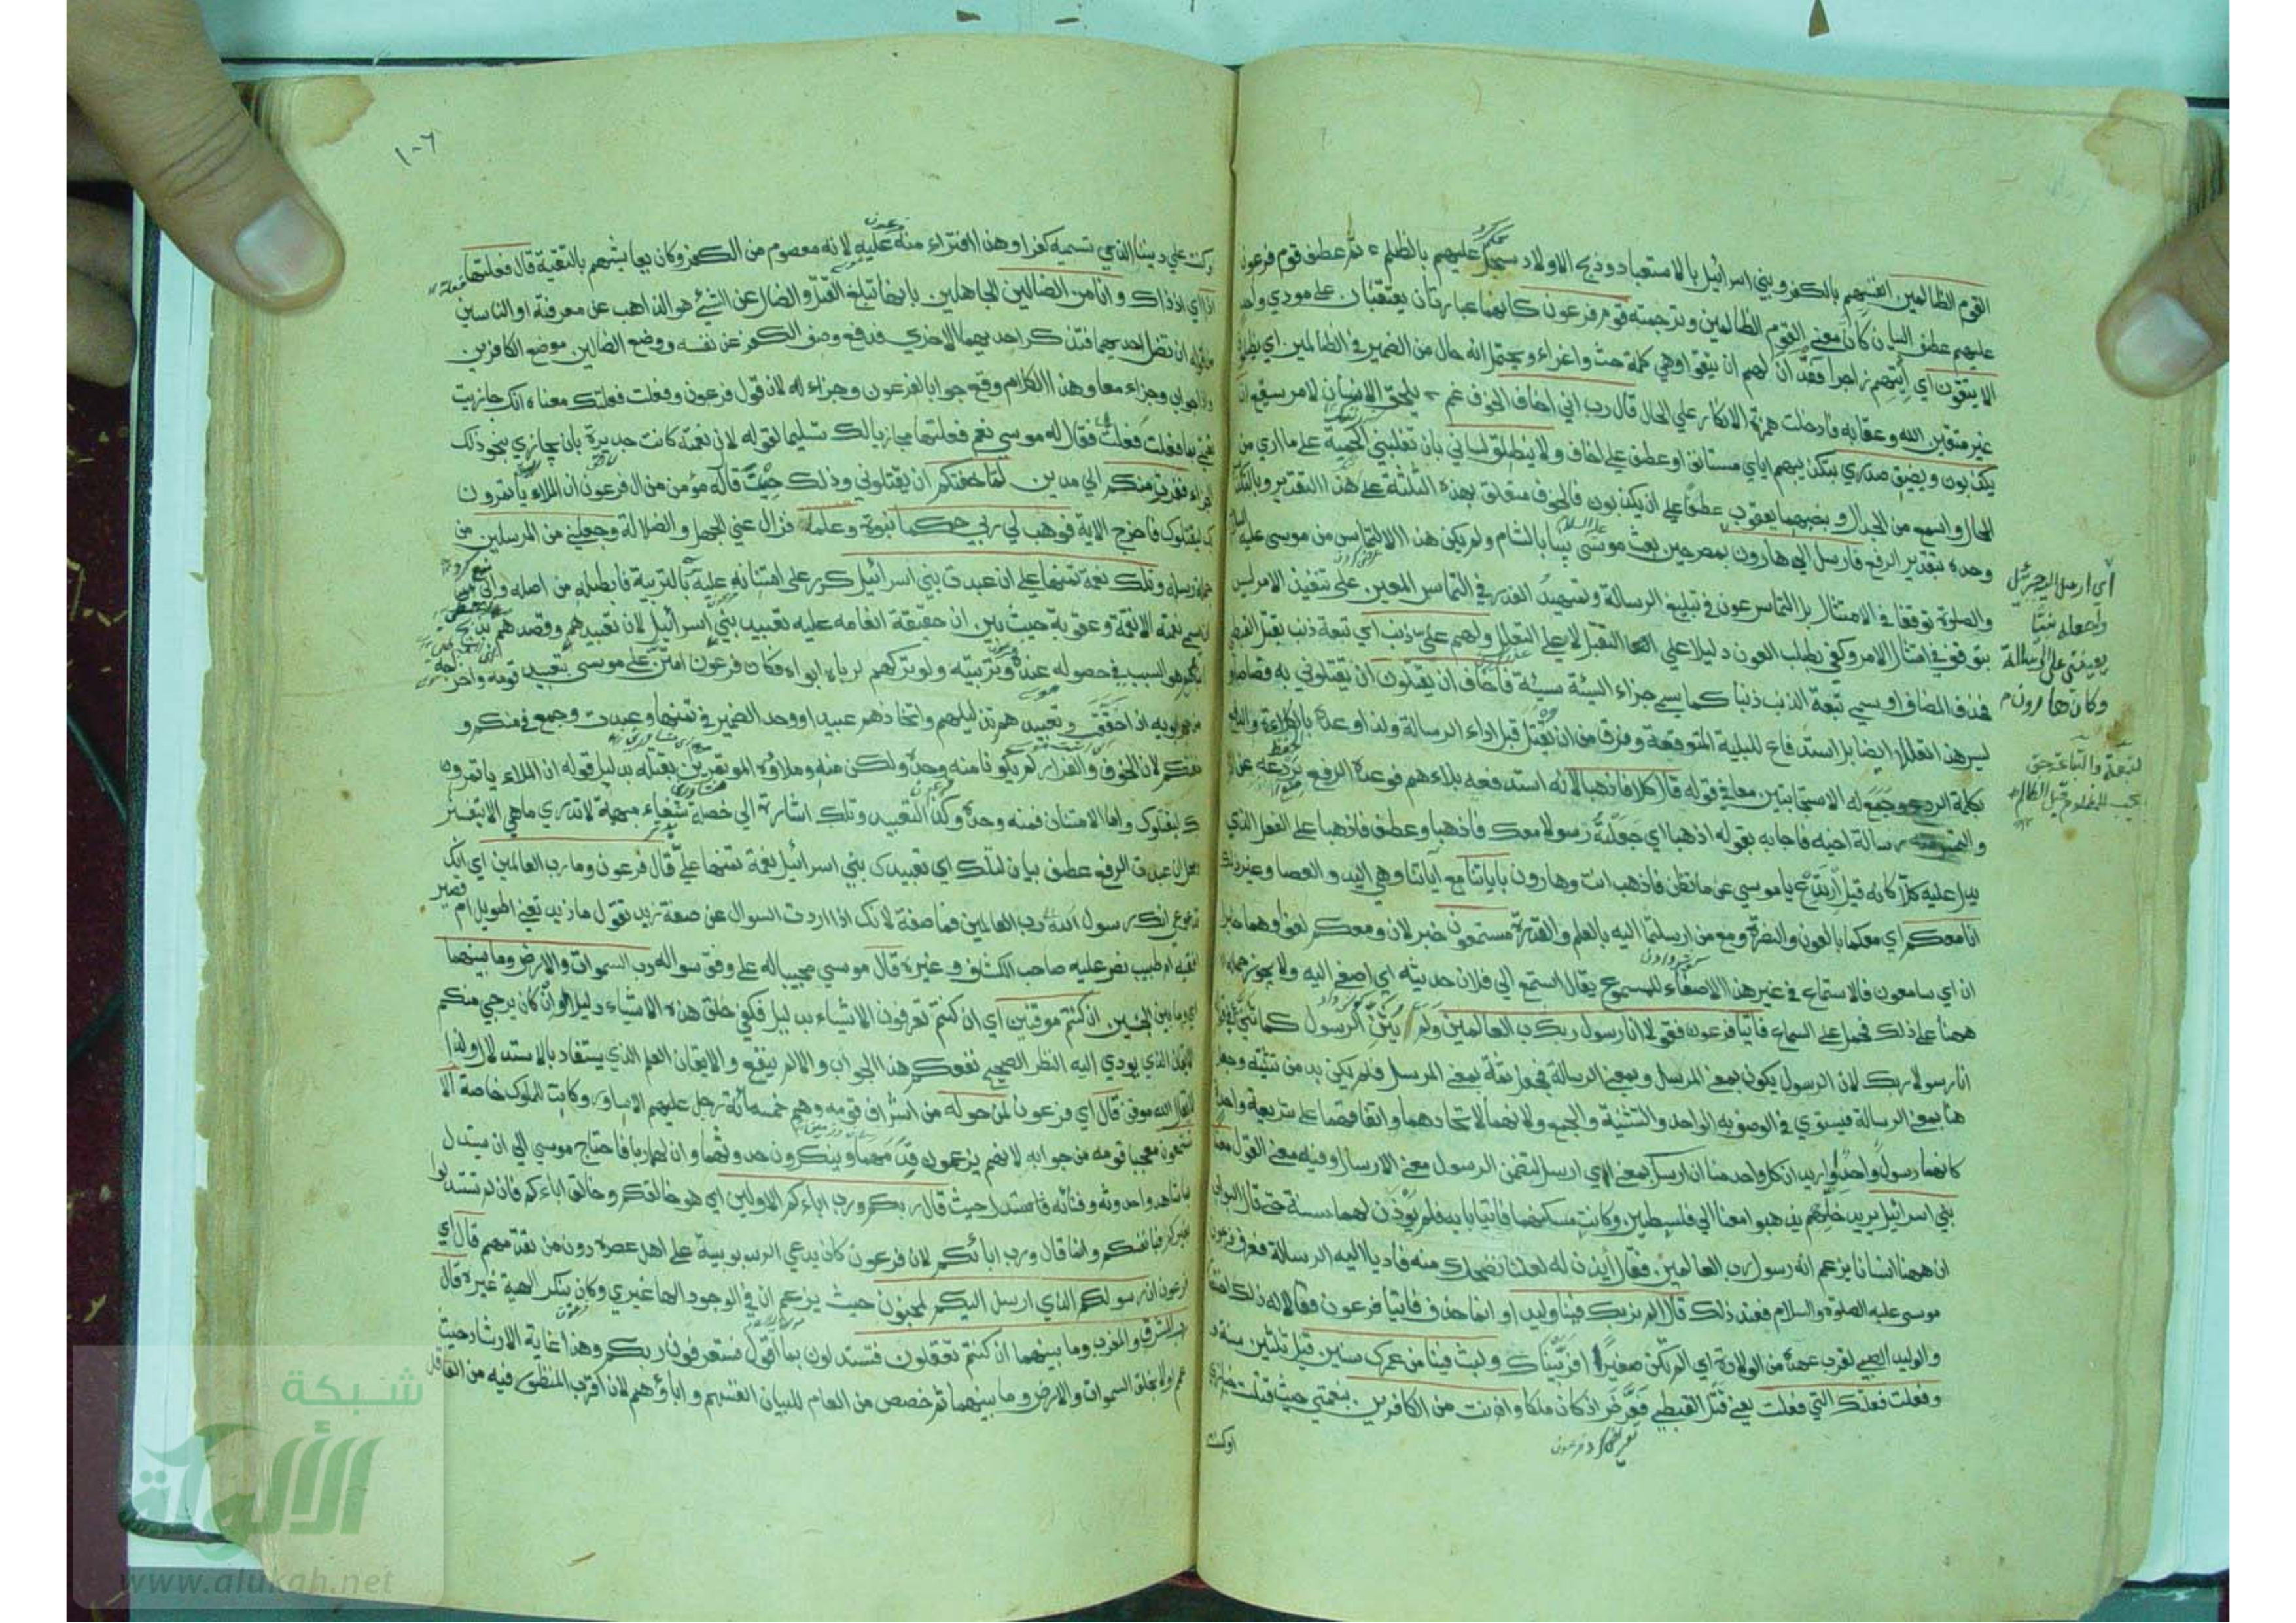 القوم الظالمين انفسهم بالكفر وبني اسرائيل بالاستعباد وذبح الاولاد سجل عليهم بالظلم ثم عطف قوم فرعون
عليهم عطف البيان كان معني القوم الظالمين وترجمته قوم فرعون كانهما عبارتان يعتقبان علي مودي واحد
الا يتقون اي ايتهم زاجرا فقد آن لهم ان يتقوا وهي كلمة حث واغراء ويحتمل انه حال من الضمير في الظالمين اي يظلمون
غير متقين الله وعقابه فادخلت همزة الانكار علي الحال قال رب اني اخاف الخوف غم يلحق الانسان لامر سيقع ان
يكذبون ويضيق صدري بتكذيبهم اياي مستانف او عطف علي اخاف ولا ينطلق لساني بان تغلبني الحمية علي ما اري من
المحال واسمع من الجدال و بنصبهما يعقوب عطفا علي ان يكذبون فالخوف متعلق بهذه الثلثة علي هذا التقدير وبالتكذيب
وحده بتقدير الرفع فارسل الي هارون بمصر حين بعث موسي نبيا بالشام ولم يكن هذا الالتماس من موسي عليه السلام
والصلوة توقفا في الامتثال بل التماس عون في تبليغ الرسالة وتمهيد العذر في التماس المعين علي تنفيذ الامر ليس
بتوقف في امتثال الامر وكفي بطلب العون دليلا علي التقبل لا علي التعلل ولهم علي ذنب اي تبعة ذنب بقتل القبطي
فحذف المضاف او سمي تبعة الذنب ذنبا كما سمي جزاء السيئة سيئة فاخاف ان يقتلون ان يقتلوني به قصاصا و
ليس هذا تعللا ايضا بل استدفاع للبلية المتوقعة وفرقا من ان يقتل قبل اداء الرسالة ولذا وعده بالكلاءة والدفع
بكلمة الردع وجمع له الاستجابتين معا في قوله قال كلا فاذهبا لانه استدفعه بلاءهم فوعده الدفع بردعه عن الخوف
والتمس رسالة اخيه فاجابه بقوله اذهبا اي جعلته رسولا معك فاذهبا وعطف فاذهبا علي الفعل الذي
يدل عليه كلا كانه قيل ارتدع يا موسي عما تظن فاذهب انت وهارون باياتنا مع آياتنا وهي اليد والعصا وغير ذلك
انا معكم اي معكما بالعون والنصرة ومع من ارسلتما اليه بالعلم والقدرة مستمعون خبر لان ومعكم لغو او هما خبران
ان اي سامعون فالاستماع في غير هذا الاصغاء للمسموع يقال استمع الي فلان حديثه اي اصغي اليه ولا يجوز حمله
ههنا علي ذلك فحمل علي السماع فاتيا فرعون فقولا انا رسول رب العالمين ولم يثن الرسول كما ثني في قوله
انا رسولا ربك لان الرسول يكون بمعني المرسل وبمعني الرسالة فجعل ثمة بمعني المرسل فلم يكن بد من تثنيته وجعل
هنا بمعني الرسالة فيستوي في الوصف به الواحد والتثنية والجمع ولانهما لاتحادهما واتفاقهما علي شريعة واحدة
كانهما رسول واحد او اريد ان كل واحد منا ان ارسل بمعني اي ارسل لتضمن الرسول معني الارسال وفيه معني القول معنا
بني اسرائيل يريد خلهم يذهبوا معنا الي فلسطين وكانت مسكنهما فاتيا بابه فلم يؤذن لهما سنة حتي قال البواب
ان ههنا انسانا يزعم انه رسول رب العالمين فقال ايذن له لعلنا نضحك منه فاديا اليه الرسالة فعرف فرعون
موسي عليه الصلوة والسلام فعند ذلك قال الم نربك فينا وليدا وانما حذف فاتيا فرعون فقالا له ذلك
والوليد الصبي لقرب عهده من الولادة اي الم تكن صغيرا فربيناك ولبثت فينا من عمرك سنين قيل ثلثين سنة
وفعلت فعلتك التي فعلت يعني قتل القبطي فعرض اذ كان ملكا وانت من الكافرين بنعمتي حيث قتلت خبازي
اوكنت
اي ارسل اليه جبرئيل
واجعله نبيا
يعينني علي الرسالة
وكان هارون
التبعة والتباعة حق
يجب للمظلوم قبل الظالم
١٠٦
او كنت علي ديننا الذي تسميه كفرا وهذا افتراء منه عليه لانه معصوم من الكفر وكان يعايشهم بالتقية قال فعلتها
اذا اي اذ ذاك وانا من الضالين الجاهلين بانها تبلغ القتل والضال عن الشئ هو الذاهب عن معرفته او الناسين
من قوله ان تضل احديهما فتذكر احديهما الاخري فدفع وصف الكفر عن نفسه ووضع الضالين موضع الكافرين
واذا جواب وجزاء معا وهذا الكلام وقع جوابا لفرعون وجزاء له لان قول فرعون وفعلت فعلتك معناه انك جازيت
نعمتي بما فعلت فقال له موسي نعم فعلتها مجازيا لك تسليما لقوله لان نعمته كانت جديرة بان يجازي بنحو ذلك
الجزاء ففررت منكم الي مدين لما خفتكم ان يقتلوني وذلك حيث قال له مؤمن من ال فرعون ان الملاء ياتمرون
بك ليقتلوك فاخرج الاية فوهب لي ربي حكما نبوة وعلما فزال عني الجهل والضلالة وجعلني من المرسلين من
جملة رسله وتلك نعمة تمنها علي ان عبدت بني اسرائيل كر علي امتنانه عليه بالتربية فابطله من اصله وابي
ان يسمي نعمة الا نقمة وعقوبة حيث بين ان حقيقة انعامه عليه تعبيد بني اسرائيل لان تعبيدهم وقصدهم بذبح
ابنائهم هو السبب في حصوله عنده وتربيته ولو تركهم لرباه ابواه فكان فرعون امتن علي موسي بتعبيد قومه واخراجه
من حجر ابويه اذا حققت وتعبيدهم تذليلهم واتخاذهم عبيدا ووحد الضمير في تمنها وعبدت وجمع في منكم و
خفتكم لان الخوف والفرار لم يكونا منه وحده ولكن منه وملاؤه المؤتمرين بقتله بدليل قوله ان الملاء ياتمرون
بك ليقتلوك واما الامتنان فمنه وحده وكذا التعبيد وتلك اشارة الي خصلة شنعاء مبهمة لا تدري ما هي الا بتفسير
محل ان عبدت الرفع عطف بيان لتلك اي تعبيدك بني اسرائيل نعمة تمنها علي قال فرعون وما رب العالمين اي انك
تدعي انك رسول رب العالمين فما صفته لانك اذا اردت السوال عن صفة زيد تقول ما زيد يعني اطويل ام قصير
افقيه ام طبيب نص عليه صاحب الكشاف وغيره قال موسي مجيبا له علي وفق سواله رب السموات والارض وما بينهما
اي وما بين الجنسين ان كنتم موقنين اي ان كنتم تعرفون الاشياء بدليل فكفي خلق هذه الاشياء دليلا او ان كان يرجي منكم
الايقان الذي يودي اليه النظر الصحيح نفعكم هذا الجواب والا لم ينفع والايقان العلم الذي يستفاد بالاستدلال ولذا
لا يقال الله موقن قال اي فرعون لمن حوله من اشراف قومه وهم خمسمائة رجل عليهم الاساور وكانت للملوك خاصة الا
تستمعون معجبا قومه من جوابه لانهم يزعمون قدمهما وينكرون حدوثهما وان لهما ربا فاحتاج موسي الي ان يستدل
بما شاهدوا حدوثه وفنائه فاستدل حيث قال ربكم ورب اباءكم الاولين اي هو خالقكم وخالق اباءكم فان لم تستدلوا
بغيركم فبانفسكم وانما قال ورب ابائكم لان فرعون كان يدعي الربوبية علي اهل عصره دون من تقدمهم قال اي
فرعون ان رسولكم الذي ارسل اليكم لمجنون حيث يزعم ان في الوجود الها غيري وكان ينكر الهية غيره قال
رب المشرق والمغرب وما بينهما ان كنتم تعقلون فتستدلون بما اقول فتعرفون ربكم وهذا غاية الارشاد حيث
عم اولا بخلق السموات والارض وما بينهما ثم خصص من العام للبيان انفسهم واباؤهم لان اقرب المنظور فيه من العاقل
شبكة
الألوكة
www.alukah.net